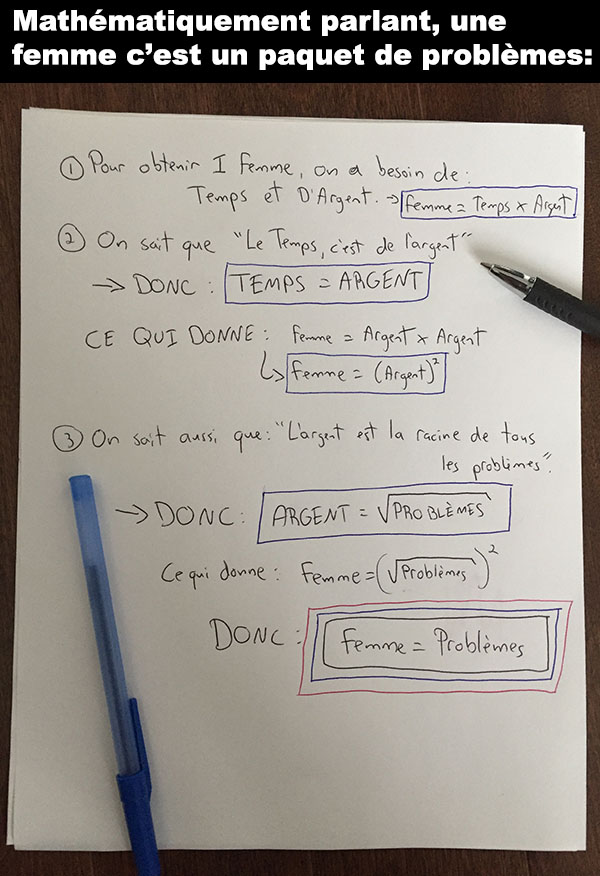 Mathématiquement parlant, une
femme c'est un paquet de problèmes:
① Pour obtenir 1 femme, on a besoin de:
Temps et D'Argent. → femme = Temps x Argent
② On sait que "Le Temps, c'est de l'argent"
→ DONC : TEMPS = ARGENT
CE QUI DONNE : femme = Argent x Argent
↳ femme = (Argent)²
③ On sait aussi que: "L'argent est la racine de tous
les problèmes".
→ DONC : ARGENT = √PROBLÈMES
Ce qui donne : Femme = (√Problèmes)²
DONC : femme = Problèmes